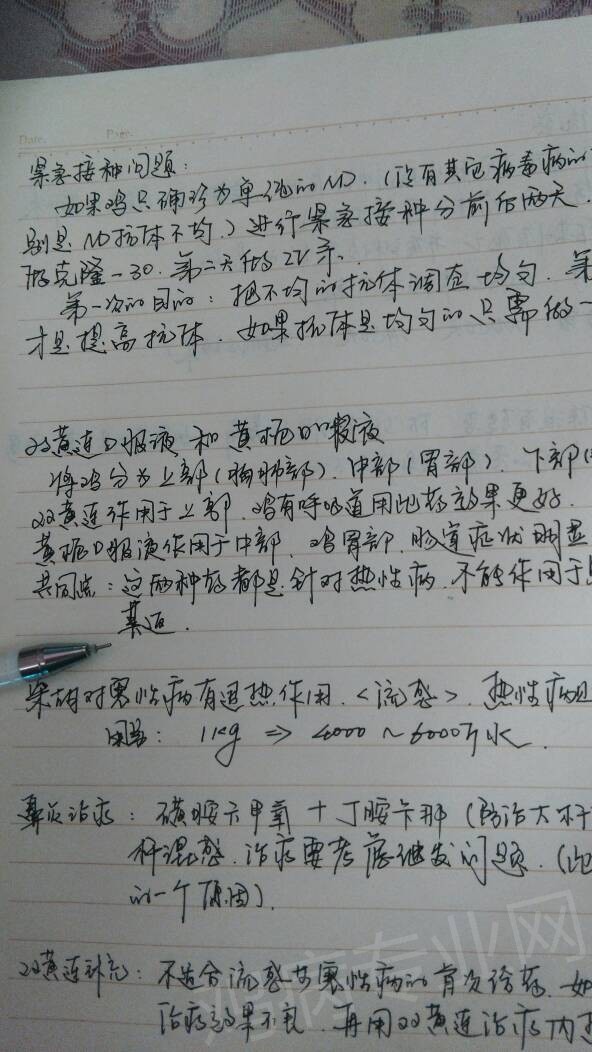 Date. Page.
紧急接种问题：
如果鸡只确诊为单纯的ND.（没有其它病毒病的
别是ND抗体不均.）进行紧急接种分前后两天.
做克隆-30. 第二天做2V系.
第一次的目的：把不均的抗体调查均匀. 第
才是提高抗体. 如果抗体是均匀的只需做一
双黄连口服液和黄栀口服液
将鸡分为上部（胸肺部）. 中部（胃部）. 下部（
双黄连作用于上部. 鸡有呼吸道用此药效果更好.
黄栀口服液作用于中部. 鸡胃部. 肠道症状明显
共同点：这两种药都是针对热性病. 不能作用于
柴胡对寒性病有退热作用.〈流感〉. 热性病
用量： 1kg ⇒ 4000～6000斤水.
鼻炎治疗：磺胺六甲氧+丁胺卡那（防治大杆
杆混感. 治疗要考虑继发问题.（
的一个原因）.
双黄连补充：不适合流感等寒性病的首次治药. 如
治疗效果不良. 再用双黄连治疗内
鸡病专业网